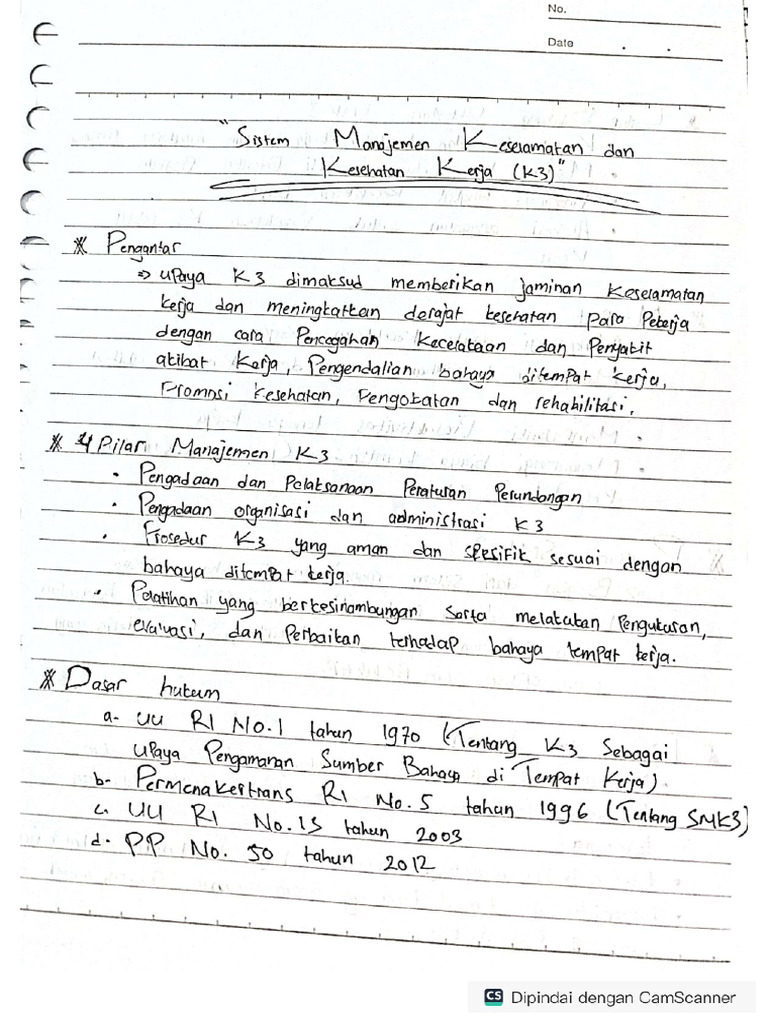 No.
Date
"Sistem Manajemen Keselamatan dan
Kesehatan Kerja (K3)"
* Pengantar
⇒ upaya K3 dimaksud memberikan jaminan Keselamatan
kerja dan meningkatkan derajat kesehatan para Pekerja
dengan cara Pencegahan Kecelakaan dan Penyakit
akibat Kerja, Pengendalian bahaya ditempat kerja,
Promosi kesehatan, Pengobatan dan rehabilitasi.
* 4 Pilar Manajemen K3
• Pengadaan dan Pelaksanaan Peraturan Perundangan
• Pengadaan organisasi dan administrasi K3
• Prosedur K3 yang aman dan spesifik sesuai dengan
bahaya ditempat kerja.
• Pelatihan yang berkesinambungan serta melakukan Pengukuran,
evaluasi, dan Perbaikan terhadap bahaya tempat kerja.
* Dasar hukum
a- UU RI No.1 tahun 1970 (Tentang K3 Sebagai
upaya Pengamanan Sumber Bahaya di Tempat Kerja)
b- Permenakertrans RI No. 5 tahun 1996 (Tentang SMK3)
c. UU RI No. 13 tahun 2003
d. PP No. 50 tahun 2012
CS Dipindai dengan CamScanner